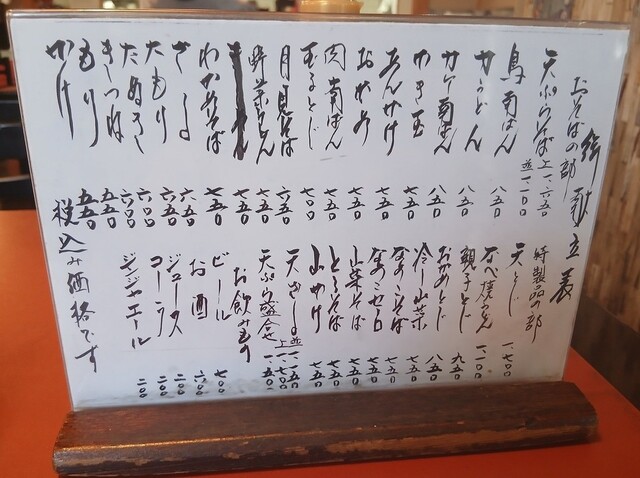 御献立表
おそばの部
天ぷらそば 上一・六五〇 並一・一〇〇
鳥南ばん 八五〇
力うどん 八五〇
カレー南ばん 八五〇
かき玉 七五〇
あんかけ 七五〇
おかめ 七五〇
肉南ばん 七〇〇
玉子とじ 七〇〇
月見そば 六五〇
野菜うどん 七五〇
七五〇
わかめそば 七五〇
ざる 六五〇
大もり 六五〇
たぬき 六〇〇
きつね 六〇〇
もり 五五〇
かけ 五五〇
特製品の部
天とじ 一・七〇〇
なべ焼うどん 一・一〇〇
親子とじ 九五〇
おかめとじ 八五〇
冷し山菜 八五〇
なめこそば 七五〇
なめこせいろ 七五〇
山菜そば 七五〇
とろろそば 七五〇
山かけ 七五〇
天ざる 並一・一五〇 上一・七〇〇
天ぷら盛合せ 一・五〇〇
お飲みもの
ビール 七〇〇
お酒 六〇〇
ジュース 二〇〇
コーラ 二〇〇
ジンジャエール 二〇〇
税込み価格です